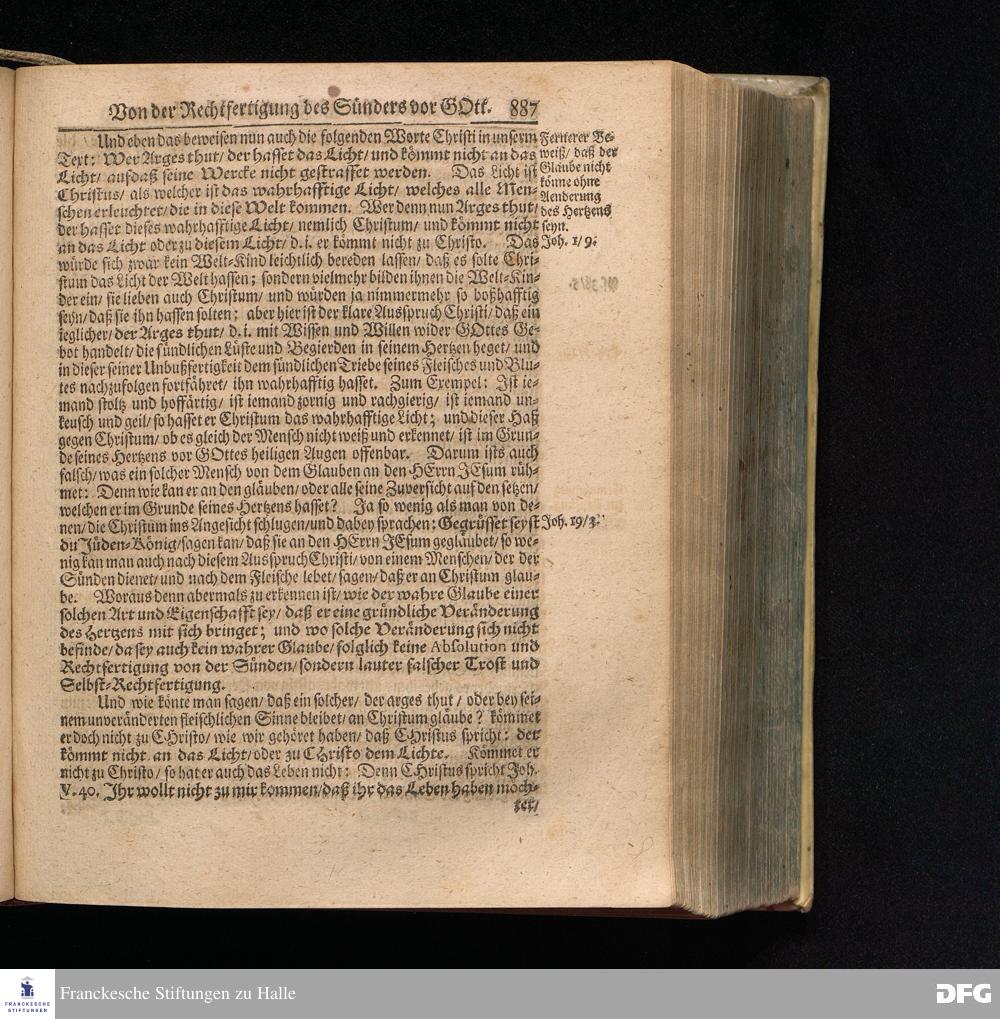 Von der Rechtfertigung des Sünders vor GOtt. 887
Und eben das beweisen nun auch die folgenden Worte Christi in unserm
Text: Wer Arges thut/ der hasset das Licht/ und kömmt nicht an das
Licht/ aufdaß seine Wercke nicht gestraffet werden. Das Licht ist
Christus/ als welcher ist das wahrhafftige Licht/ welches alle Men-
schen erleuchtet/ die in diese Welt kommen. Wer denn nun Arges thut/
der hasset dieses wahrhafftige Licht/ nemlich Christum/ und kömmt nicht
an das Licht oder zu diesem Licht/ d. i. er kömmt nicht zu Christo. Das
würde sich zwar kein Welt-Kind leichtlich bereden lassen/ daß es solte Chri-
stum das Licht der Welt hassen; sondern vielmehr bilden ihnen die Welt-Kin-
der ein/ sie lieben auch Christum/ und würden ja nimmermehr so boßhafftig
seyn/ daß sie ihn hassen solten; aber hier ist der klare Ausspruch Christi/ daß ein
ieglicher/ der Arges thut/ d. i. mit Wissen und Willen wider GOttes Ge-
bot handelt/ die sündlichen Lüste und Begierden in seinem Hertzen heget/ und
in dieser seiner Unbußfertigkeit dem sündlichen Triebe seines Fleisches und Blu-
tes nachzufolgen fortfähret/ ihn wahrhafftig hasset. Zum Exempel: Ist ie-
mand stoltz und hoffärtig/ ist iemand zornig und rachgierig/ ist iemand un-
keusch und geil/ so hasset er Christum das wahrhafftige Licht; und dieser Haß
gegen Christum/ ob es gleich der Mensch nicht weiß und erkennet/ ist im Grun-
de seines Hertzens vor GOttes heiligen Augen offenbar. Darum ists auch
falsch/ was ein solcher Mensch von dem Glauben an den HErrn JEsum rüh-
met: Denn wie kan er an den gläuben/ oder alle seine Zuversicht auf den setzen/
welchen er im Grunde seines Hertzens hasset? Ja so wenig als man von de-
nen/ die Christum ins Angesicht schlugen/ und dabey sprachen: Gegrüsset seyst
du Jüden-König/ sagen kan/ daß sie an den HErrn JEsum gegläubet/ so we-
nig kan man auch nach diesem Ausspruch Christi/ von einem Menschen/ der der
Sünden dienet/ und nach dem Fleische lebet/ sagen/ daß er an Christum gläu-
be. Woraus denn abermals zu erkennen ist/ wie der wahre Glaube einer
solchen Art und Eigenschafft sey/ daß er eine gründliche Veränderung
des Hertzens mit sich bringet; und wo solche Veränderung sich nicht
befinde/ da sey auch kein wahrer Glaube/ folglich keine Absolution und
Rechtfertigung von der Sünden/ sondern lauter falscher Trost und
Selbst-Rechtfertigung.
Und wie könte man sagen/ daß ein solcher/ der arges thut/ oder bey sei-
nem unveränderten fleischlichen Sinne bleibet/ an Christum gläube? kömmet
er doch nicht zu CHristo/ wie wir gehöret haben/ daß CHristus spricht: der
kömmt nicht an das Licht/ oder zu CHristo dem Lichte. Kömmet er
nicht zu Christo/ so hat er auch das Leben nicht: Denn CHristus spricht Joh.
V. 40. Ihr wollt nicht zu mir kommen/ daß ihr das Leben haben möch-
tet/
Fernerer Be-
weiß/ daß der
Glaube nicht
könne ohne
Aenderung
des Hertzens
seyn.
Joh. 1/9.
Joh. 19/3.
FRANCKESCHE
STIFTUNGEN
Franckesche Stiftungen zu Halle
DFG